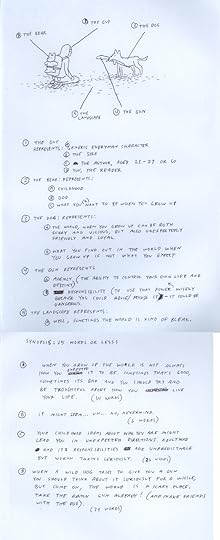 ② THE GUY
③ THE DOG
① THE BEAR
⑤ THE LANDSCAPE
④ THE GUN
① THE GUY REPRESENTS: Ⓐ GENERIC EVERYMAN CHARACTER
Ⓑ THE SELF
Ⓒ THE AUTHOR, AGED 25-27 OR SO
Ⓓ YOU, THE READER
② THE BEAR: REPRESENTS:
Ⓐ CHILDHOOD
Ⓑ GOD
Ⓒ WHAT YOU WANT TO BE WHEN YOU GROW UP
③ THE DOG: REPRESENTS:
Ⓐ THE WORLD, WHEN YOU GROW UP CAN BE BOTH
SCARY AND VICIOUS, BUT ALSO UNEXPECTEDLY
FRIENDLY AND LOYAL
WHAT YOU FIND OUT IN THE WORLD WHEN
YOU GROW UP IS NOT WHAT YOU EXPECT
④ THE GUN REPRESENTS
Ⓐ AGENCY (THE ABILITY TO CONTROL YOUR OWN LIFE AND
Ⓑ RESPONSIBILITY (TO USE THAT POWER WISELY
BECAUSE YOU COULD ABUSE IT - IT COULD BE
DANGEROUS.
⑤ THE LANDSCAPE REPRESENTS
Ⓐ WELL, SOMETIMES THE WORLD IS KIND OF BLEAK.
SYNOPSIS: 25 WORDS OR LESS!
Ⓐ WHEN YOU GROW UP THE WORLD IS NOT ALWAYS
HOW YOU EXPECTED IT TO BE. SOMETIMES THAT'S GOOD,
SOMETIMES ITS BAD AND YOU SHOULD TRY AND
BE THOUGHTFUL ABOUT HOW YOU LIVE
YOUR LIFE.
Ⓑ IT MIGHT SEEM... UM... NO, NEVERMIND.
Ⓒ YOUR CHILDHOOD IDEAS ABOUT WHO YOU ARE MIGHT
LEAD YOU IN UNEXPECTED DIRECTIONS. ADULTHOOD
AND ITS RESPONSIBILITIES ARE UNPREDICTABLE
BUT WORTH TAKING SERIOUSLY.
Ⓓ WHEN A WILD DOG TRIES TO GIVE YOU A GUN
YOU SHOULD THINK ABOUT IT SERIOUSLY FOR A WHILE,
BUT COME ON, THE WORLD IS A SCARY PLACE,
TAKE THE DAMN GUN ALREADY! (AND MAKE FRIENDS
WITH THE DOG).